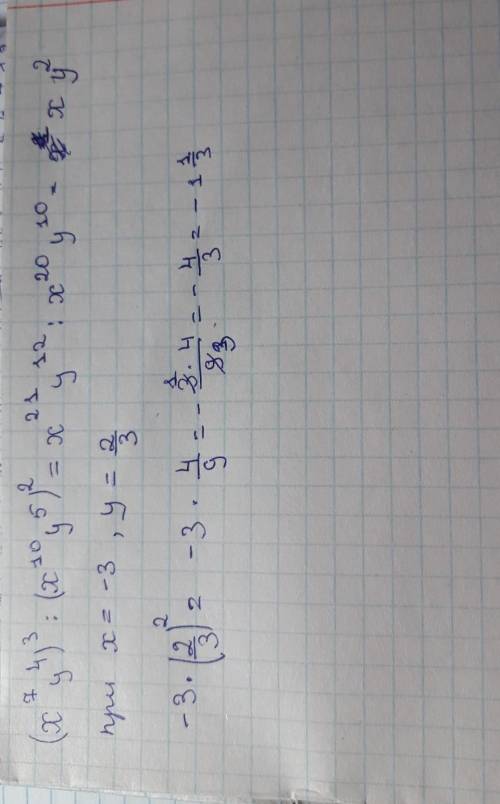 (x⁷y⁴)³ : (x¹⁰y⁵)² = x²¹y¹² : x²⁰y¹⁰ = xy²
при x = -3, y = 2/3
-3 · (2/3)² = -3 · 4/9 = - 3·4/9 = - 4/3 = -1 1/3